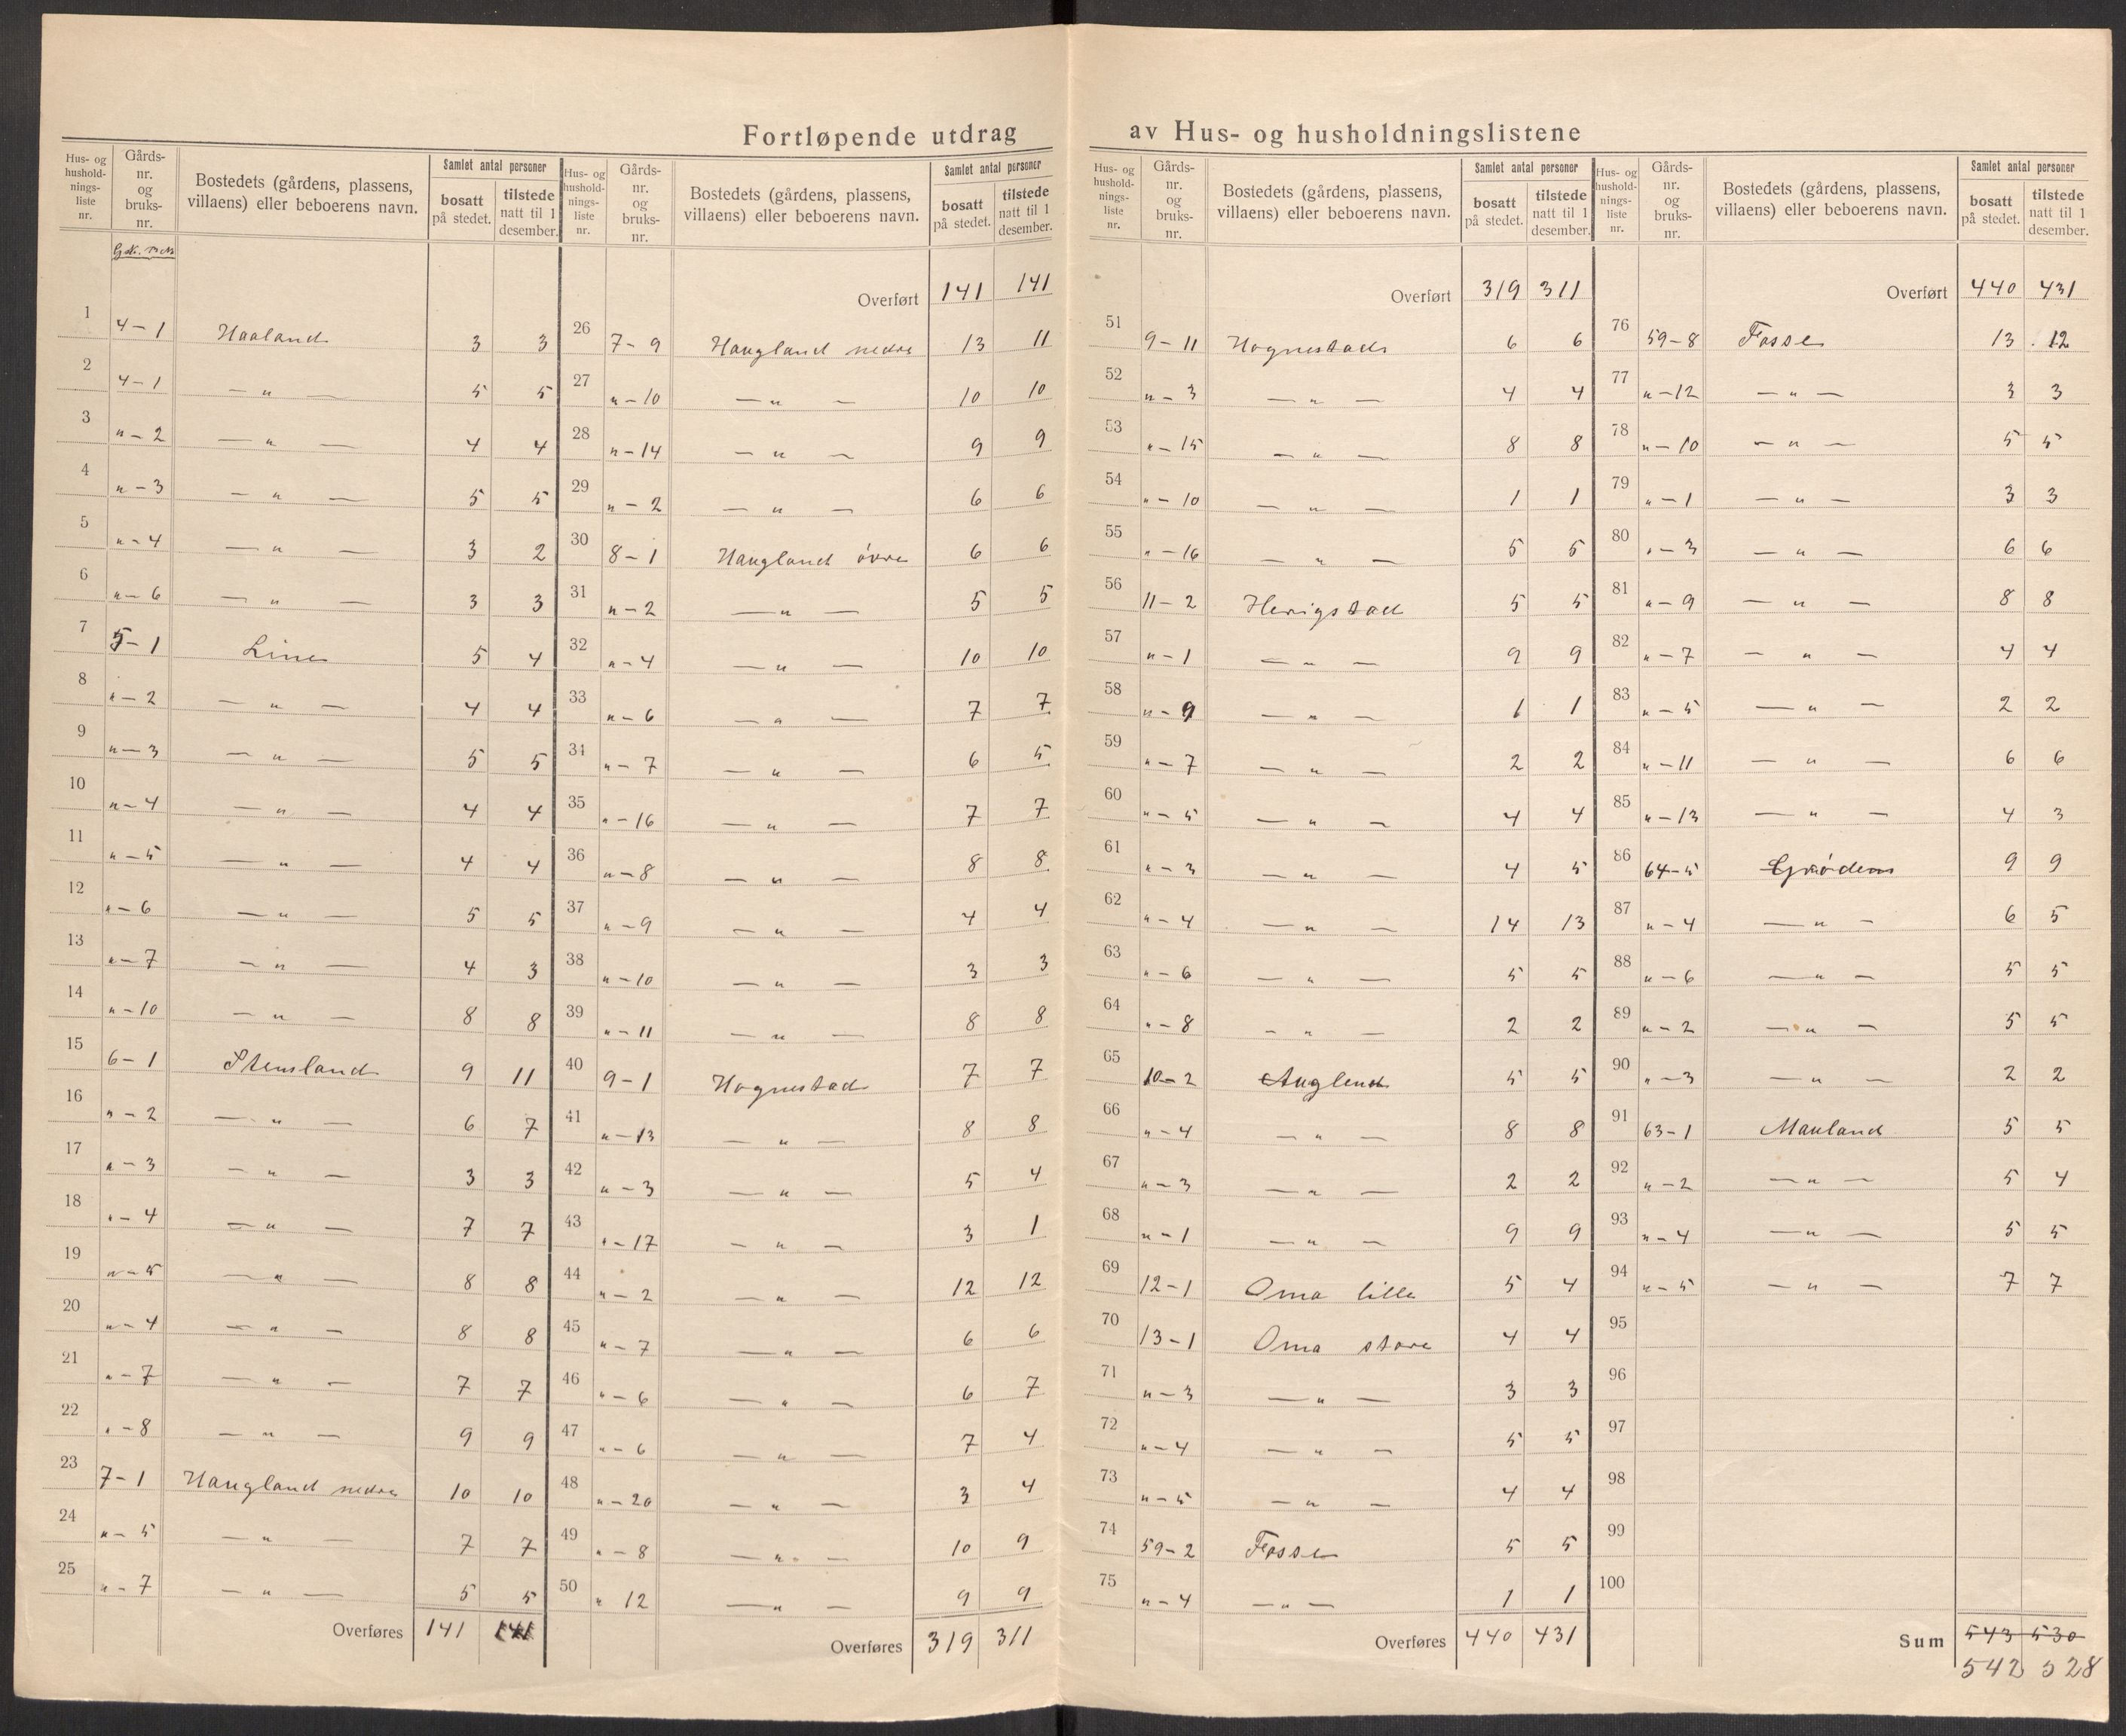 Fortløpende utdrag av Hus- og husholdningslistene
Hus- og hushold-nings-liste nr. | Gårds-nr. og bruks-nr. | Bostedets (gårdens, plassens, villaens) eller beboerens navn. | Samlet antal personer | bosatt på stedet. | tilstede natt til 1 desember.
1 | 4 – 1 | Haaland | 3 | 3
2 | 4 – 1 | — " — | 5 | 5
3 | " – 2 | — " — | 4 | 4
4 | " – 3 | — " — | 5 | 5
5 | " – 4 | — " — | 3 | 2
6 | " – 6 | — " — | 3 | 3
7 | 5 – 1 | Line | 5 | 4
8 | " – 2 | — " — | 4 | 4
9 | " – 3 | — " — | 5 | 5
10 | " – 4 | — " — | 4 | 4
11 | " – 5 | — " — | 4 | 4
12 | " – 6 | — " — | 5 | 5
13 | " – 7 | — " — | 4 | 3
14 | " – 10 | — " — | 8 | 8
15 | 6 – 1 | Stensland | 9 | 11
16 | " – 2 | — " — | 6 | 7
17 | " – 3 | — " — | 3 | 3
18 | " – 4 | — " — | 7 | 7
19 | " – 5 | — " — | 8 | 8
20 | " – 4 | — " — | 8 | 8
21 | " – 7 | — " — | 7 | 7
22 | " – 8 | — " — | 9 | 9
23 | 7 – 1 | Haugland nedre | 10 | 10
24 | " – 5 | — " — | 7 | 7
25 | " – 7 | — " — | 5 | 5
Overføres | 141 | 141
Hus- og hushold-nings-liste nr. | Gårds-nr. og bruks-nr. | Bostedets (gårdens, plassens, villaens) eller beboerens navn. | Samlet antal personer | bosatt på stedet. | tilstede natt til 1 desember.
Overført | 141 | 141
26 | 7 – 9 | Haugland nedre | 13 | 11
27 | " – 10 | — " — | 10 | 10
28 | " – 14 | — " — | 9 | 9
29 | " – 2 | — " — | 6 | 6
30 | 8 – 1 | Haugland övre | 6 | 6
31 | " – 2 | — " — | 5 | 5
32 | " – 4 | — " — | 10 | 10
33 | " – 6 | — " — | 7 | 7
34 | " – 7 | — " — | 6 | 5
35 | " – 16 | — " — | 7 | 7
36 | " – 8 | — " — | 8 | 8
37 | " – 9 | — " — | 4 | 4
38 | " – 10 | — " — | 3 | 3
39 | " – 11 | — " — | 8 | 8
40 | 9 – 1 | Hognestad | 7 | 7
41 | " – 13 | — " — | 8 | 8
42 | " – 3 | — " — | 5 | 4
43 | " – 17 | — " — | 3 | 1
44 | " – 2 | — " — | 12 | 12
45 | " – 7 | — " — | 6 | 6
46 | " – 6 | — " — | 6 | 7
47 | " – 6 | — " — | 7 | 4
48 | " – 20 | — " — | 3 | 4
49 | " – 8 | — " — | 10 | 9
50 | " 12 | — " — | 9 | 9
Overføres | 319 | 311
Hus- og hushold-nings-liste nr. | Gårds-nr. og bruks-nr. | Bostedets (gårdens, plassens, villaens) eller beboerens navn. | Samlet antal personer | bosatt på stedet. | tilstede natt til 1 desember.
Overført | 319 | 311
51 | 9 – 11 | Hognestad | 6 | 6
52 | " – 3 | — " — | 4 | 4
53 | " – 15 | — " — | 8 | 8
54 | " – 10 | — " — | 1 | 1
55 | " – 16 | — " — | 5 | 5
56 | 11 – 2 | Herigstad | 5 | 5
57 | " – 1 | — " — | 9 | 9
58 | " – 9 | — " — | 1 | 1
59 | " – 7 | — " — | 2 | 2
60 | " – 5 | — " — | 4 | 4
61 | " – 3 | — " — | 4 | 5
62 | " – 4 | — " — | 14 | 13
63 | " – 6 | — " — | 5 | 5
64 | " – 8 | — " — | 2 | 2
65 | 10 – 2 | Auglend | 5 | 5
66 | " – 4 | — " — | 8 | 8
67 | " – 3 | — " — | 2 | 2
68 | " – 1 | — " — | 9 | 9
69 | 12 – 1 | Oma lille | 5 | 4
70 | 13 – 1 | Oma store | 4 | 4
71 | " – 3 | — " — | 3 | 3
72 | " – 4 | — " — | 5 | 5
73 | " – 5 | — " — | 4 | 4
74 | 59 – 2 | Fosse | 5 | 5
75 | " – 4 | — " — | 1 | 1
Overføres | 440 | 431
Hus- og hushold-nings-liste nr. | Gårds-nr. og bruks-nr. | Bostedets (gårdens, plassens, villaens) eller beboerens navn. | Samlet antal personer | bosatt på stedet. | tilstede natt til 1 desember.
Overført | 440 | 431
76 | 59 – 8 | Fosse | 13 | 12
77 | " – 12 | — " — | 3 | 3
78 | " – 10 | — " — | 5 | 5
79 | " – 1 | — " — | 3 | 3
80 | " – 3 | — " — | 6 | 6
81 | " – 9 | — " — | 8 | 8
82 | " – 7 | — " — | 4 | 4
83 | " – 5 | — " — | 2 | 2
84 | " – 11 | — " — | 6 | 6
85 | " – 13 | — " — | 4 | 3
86 | 64 – 5 | Grödem | 9 | 9
87 | " – 4 | — " — | 6 | 5
88 | " – 6 | — " — | 5 | 5
89 | " – 2 | — " — | 5 | 5
90 | " – 3 | — " — | 2 | 2
91 | 63 – 1 | Mauland | 5 | 5
92 | " – 2 | — " — | 5 | 4
93 | " – 4 | — " — | 5 | 5
94 | " – 5 | — " — | 7 | 7
95
96
97
98
99
100
Sum | 543 | 530
542 | 528